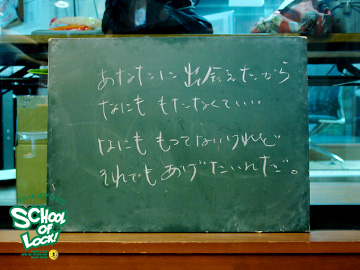 あなたに出会えたから
なにももたなくていい
なにももってないけれど
それでもあげたいんだ。
SCHOOL
OF
LOCK!